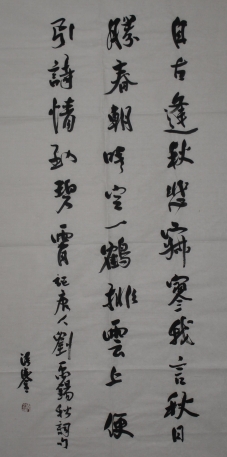 自古逢秋悲寂寥我言秋日
勝春朝晴空一鶴排雲上便
引詩情到碧霄 唐人劉禹錫秋詞